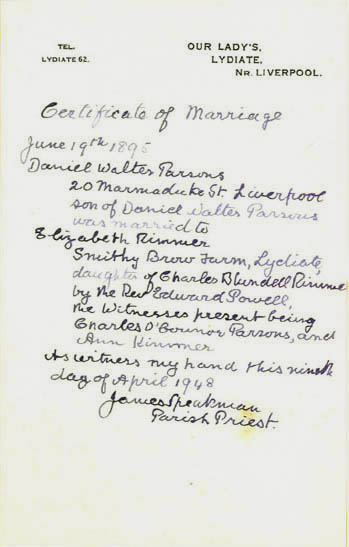 TEL.
LYDIATE 62.
OUR LADY'S,
LYDIATE,
NR. LIVERPOOL.
Certificate of Marriage
June 19th 1895
Daniel Walter Parsons
20 Marmaduke St. Liverpool
son of Daniel Walter Parsons
was married to
Elizabeth Rimmer
Smithy Brow Farm, Lydiate,
daughter of Charles Blundell Rimme
by the Rev Edward Powell,
the Witnesses present being
Charles O'Connor Parsons, and
Ann Rimmer
As witness my hand this nineth
day of April 1948
James Speakman
Parish Priest.